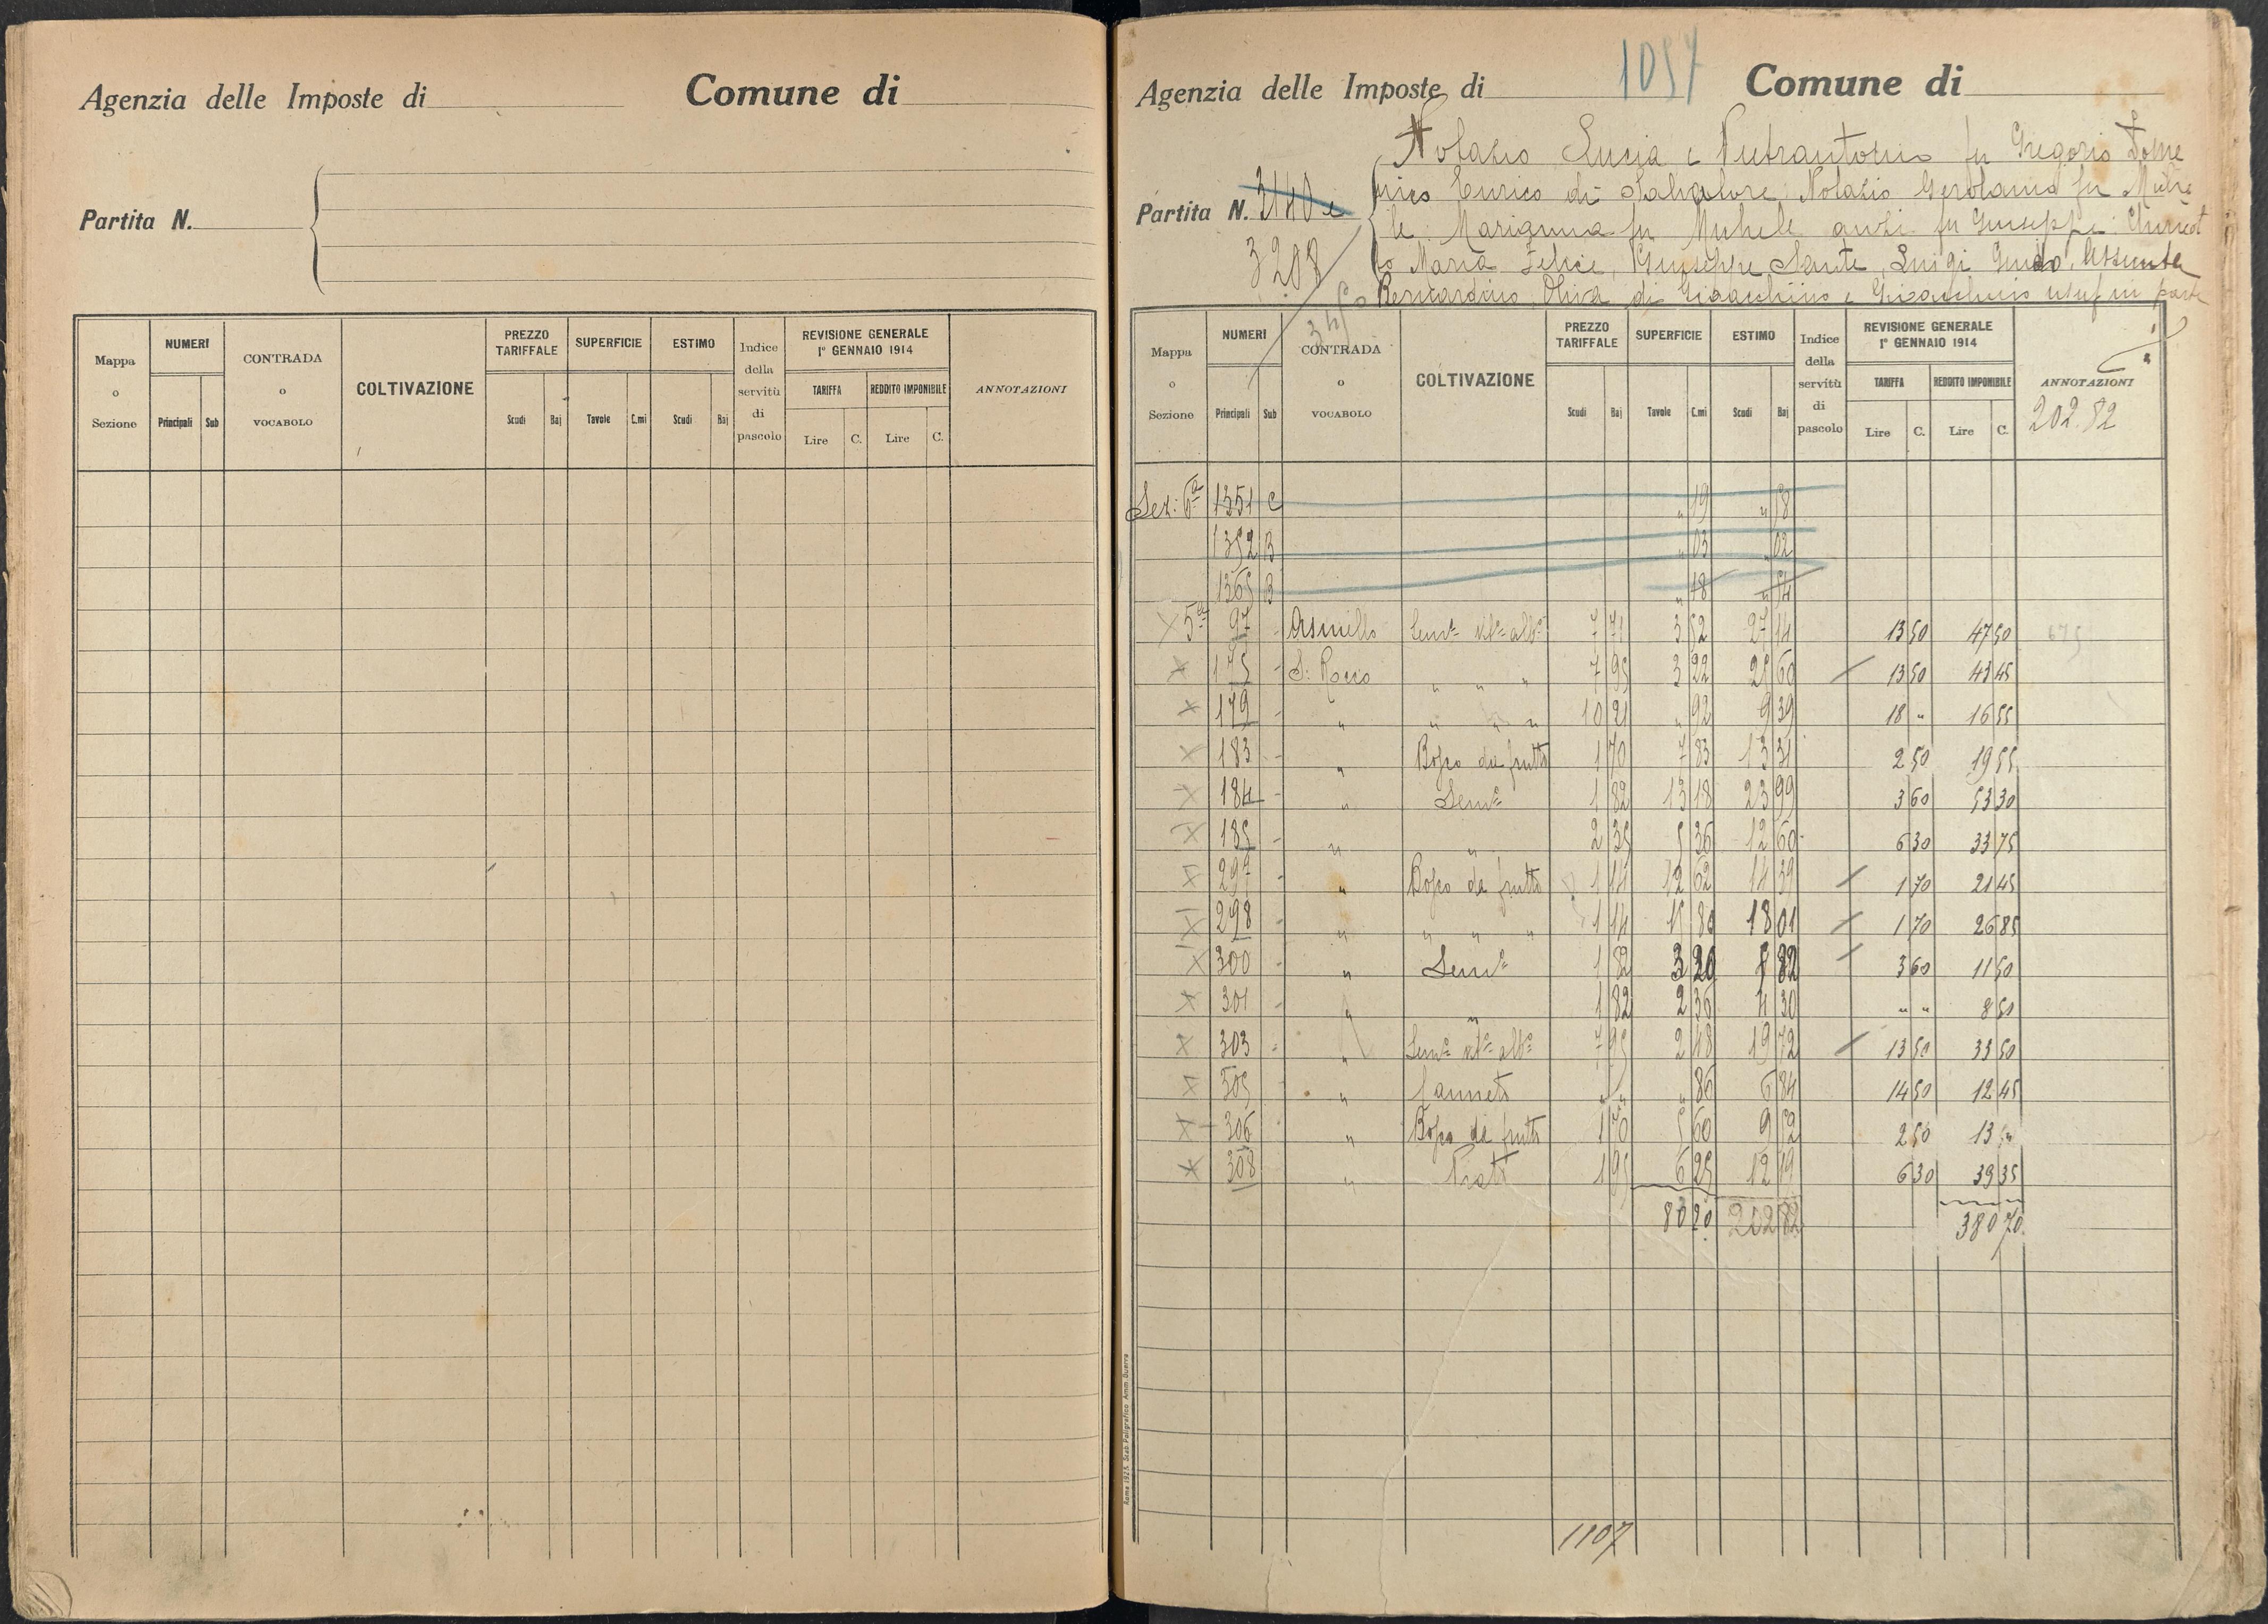 Agenzia delle Imposte di Comune di
Partita N.
Mappa o Sezione NUMERI CONTRADA o VOCABOLO COLTIVAZIONE PREZZO TARIFFALE SUPERFICIE ESTIMO Indice della servitù di pascolo REVISIONE GENERALE 1° GENNAIO 1914 ANNOTAZIONI
TARIFFA REDDITO IMPONIBILE
Principali Sub Scudi Baj Tavole C.mi Scudi Baj Lire C. Lire C.
1057
Agenzia delle Imposte di Comune di
Lucia e fu Gregorio Dome
nico Enrico di Salvatore fu Miche
Partita N. 3140 e
le Marianna fu Michele anzi fu Giuseppe
3208
Maria Felice, Giuseppe Sante, Luigi Guido, Assunta
Bernardino Oliva di Gioacchino e Gioacchino usuf in parte
Mappa o Sezione NUMERI CONTRADA o VOCABOLO COLTIVAZIONE PREZZO TARIFFALE SUPERFICIE ESTIMO Indice della servitù di pascolo REVISIONE GENERALE 1° GENNAIO 1914 ANNOTAZIONI
TARIFFA REDDITO IMPONIBILE
202.82
Principali Sub Scudi Baj Tavole C.mi Scudi Baj Lire C. Lire C.
Sez: 6ª 1351 C " 19 " 58
1352 B " 03 " 02
1365 B " 18 " 54
X 5ª 97 - 7 71 3 52 27 14 13 50 47 50 675
X 175 - S. Rocco " " " 7 95 3 22 25 60 13 50 43 45
X 179 - " " " " 10 21 " 92 9 39 18 " 16 55
X 183 - " Bosco da frutto 1 70 7 83 13 31 2 50 19 55
X 184 - " Semº 1 82 13 18 23 99 3 60 53 30
X 185 - " " 2 35 5 36 12 60 6 30 33 75
X 297 - " Bosco da frutto 1 14 12 62 14 39 1 70 21 45
X 298 - " " " " 1 14 15 80 18 01 1 70 26 85
X 300 - " Semº 1 82 3 20 5 82 3 60 11 50
X 301 - " " 1 82 2 36 4 30 " " 8 50
X 303 - " Semº vitº albº 7 95 2 48 19 72 13 50 33 50
X 305 " Canneto " " " 86 6 84 14 50 12 45
X 306 " Bosco da frutto 1 70 5 60 9 52 2 50 13 "
X 308 " Prato 1 95 6 25 12 19 6 30 39 35
80 20 202 82 380 70
1107
Roma 1923. Stab. Poligrafico Amm. Guerra